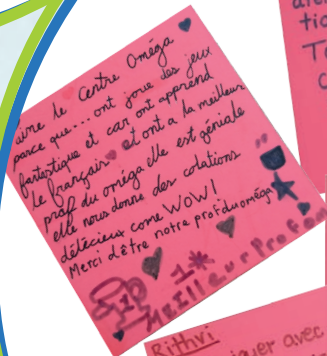 aime le Centre Oméga
parce que... ont joue des jeux
fantastique et car ont apprend
le français et ont a la meilleur
prof du oméga elle est géniale
elle nous donne des colations
délecieux come WOW!
Merci d'être notre prof du oméga
1
Meilleur Prof
Rithvi
avec